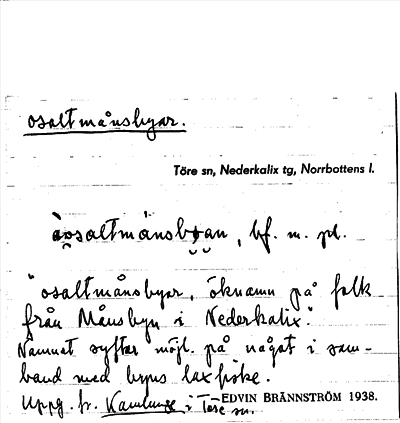 osaltmånsbyar.
Töre sn, Nederkalix tg, Norrbottens l.
bf. m. pl.
"osaltmånsbyar, öknamn på folk
från Månsbyn i Nederkalix."
Namnet syftar möjl. på något i sam-
band med byns laxfiske.
Uppg. fr. Kamlunge i Töre sn.
EDVIN BRÄNNSTRÖM 1938.